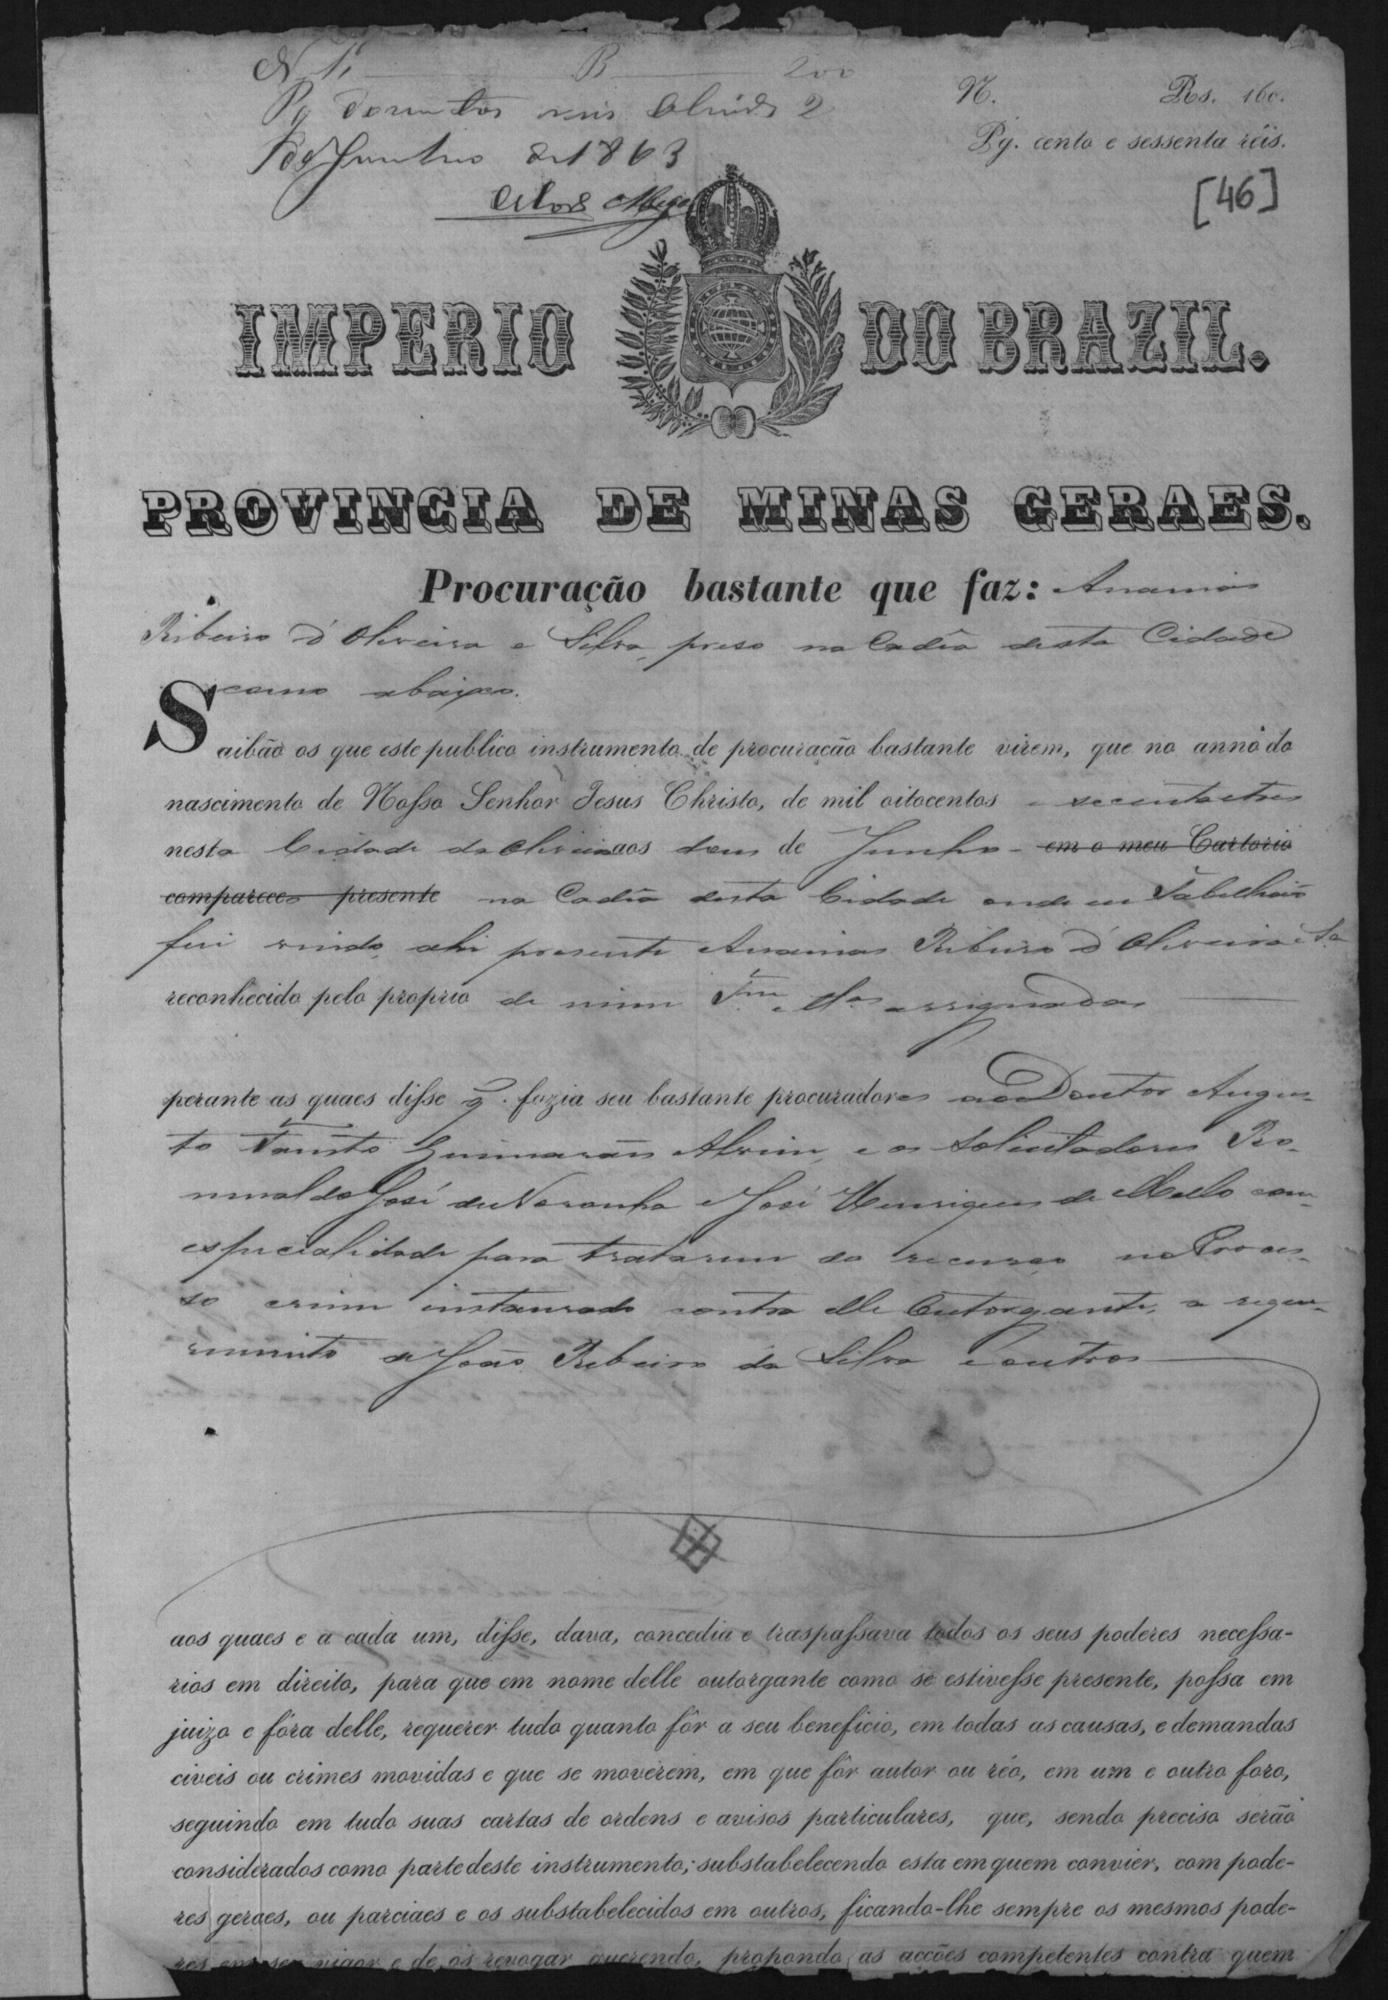 N. 1. B 200
Pg duzentos reis Olivrª 2
de Junho de 1863
N. Rs. 160.
Pg. cento e sessenta réis.
[46]
IMPERIO DO BRAZIL.
PROVINCIA DE MINAS GERAES.
Procuração bastante que faz: Ananias
Ribeiro d'Oliveira e Silva, preso na Cadêa desta Cidade
como abaixo.
Saibão os que este publico instrumento de procuração bastante virem, que no anno do
nascimento de Nosso Senhor Jesus Christo, de mil oitocentos e secenta e tres
nesta Cidade da Oliveira aos dous de Junho em o meu Cartorio
compareceo presente na Cadêa desta Cidade onde eu Tabellião
fui vindo, ahi presente Ananias Ribeiro d'Oliveira e Sa
reconhecido pelo proprio de mim e das assignadas
perante as quaes disse q. fazia seu bastante procuradores ao Doutor Augus-
to Fausto Guimarães Alvim, e os Solicitadores Ro-
mualdo José de Noronha e José Henriques de Mello com
especialidade para tratarem do recurso no Proces-
so crime instaurado contra elle Outorgante, a reque-
rimento de João Ribeiro da Silva e outros
aos quaes e a cada um, disse, dava, concedia e traspassava todos os seus poderes necessa-
rios em direito, para que em nome delle outorgante como se estivesse presente, possa em
juizo e fóra delle, requerer tudo quanto fôr a seu beneficio, em todas as causas, e demandas
civeis ou crimes movidas e que se moverem, em que fôr autor ou réo, em um e outro foro,
seguindo em tudo suas cartas de ordens e avisos particulares, que, sendo preciso serão
considerados como parte deste instrumento; substabelecendo esta em quem convier, com pode-
res geraes, ou parciaes e os substabelecidos em outros, ficando-lhe sempre os mesmos pode-
res em seu vigor e de os revogar querendo, propondo as acções competentes contra quem